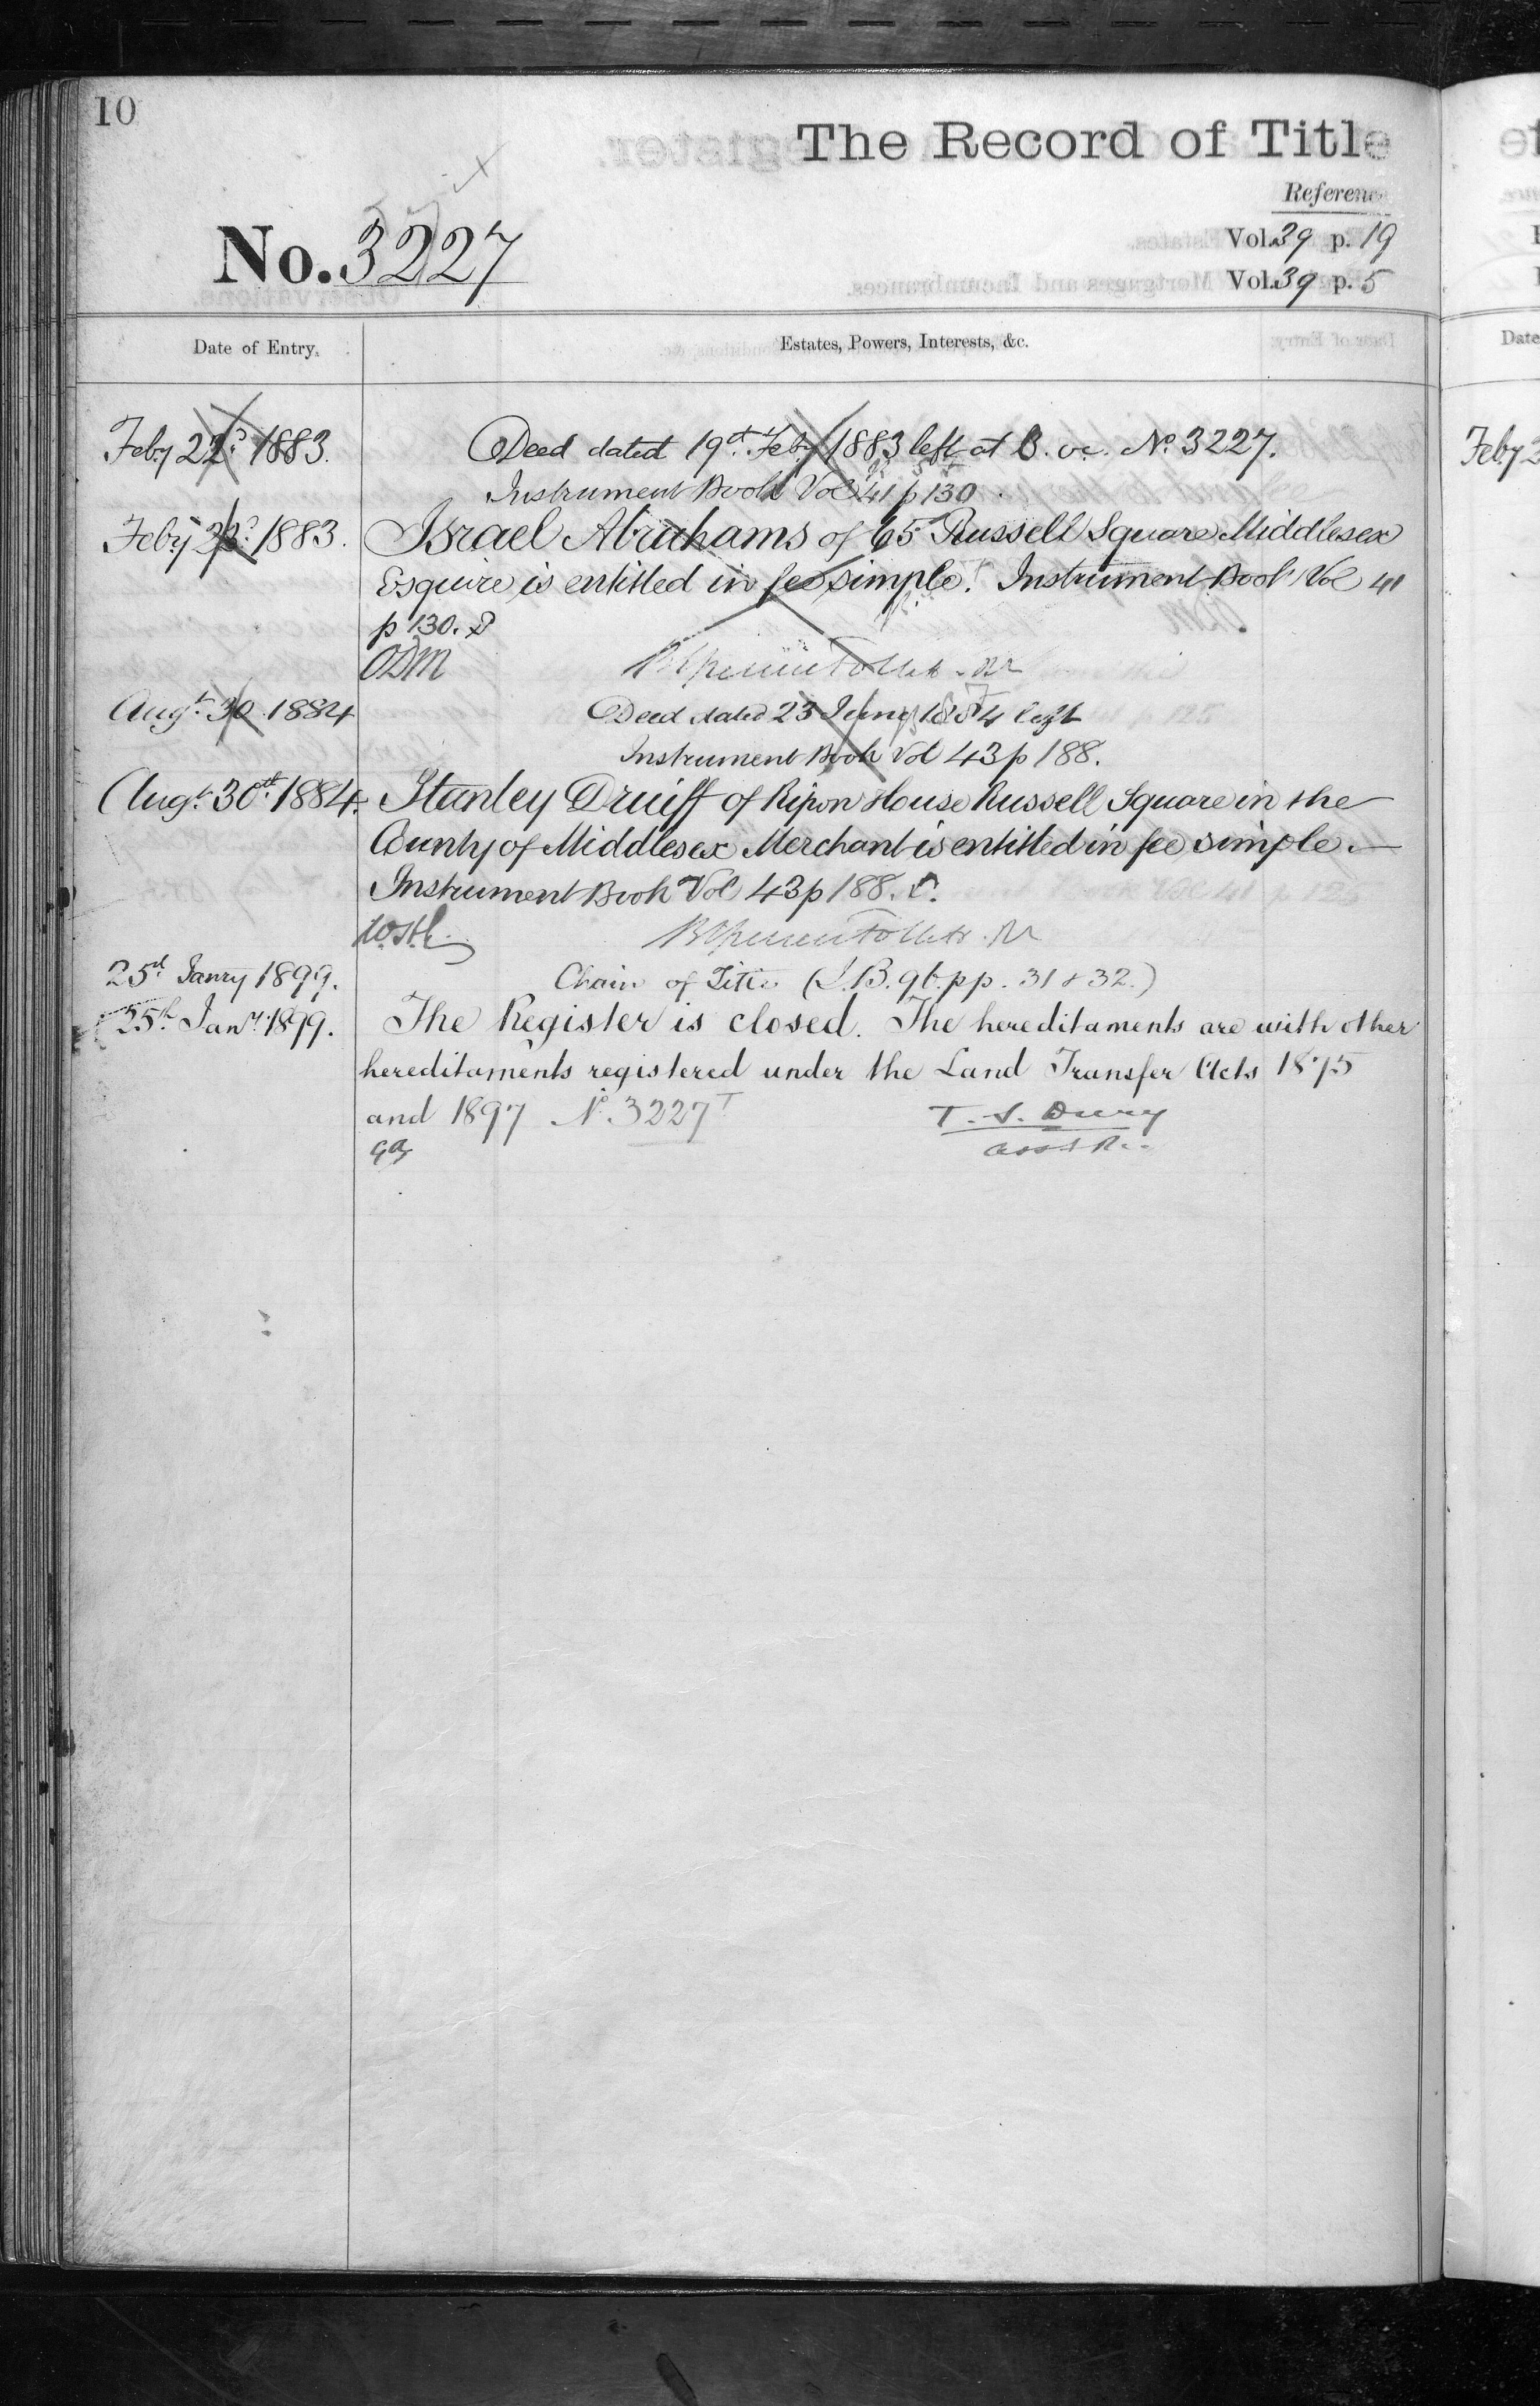 10
The Record of Title
Reference
No. 3227
Vol. 39 p. 19
Vol. 39 p. 5
Date of Entry.
Estates, Powers, Interests, &c.
Date
Feby 22d. 1883.
Deed dated 19th. Feby 1883 left at No. 3227.
Instrument Book Vol 41 p 130
Feby 1883.
Israel Abrahams of 65 Russell Square Middlesex
Esquire is entitled in fee simple. Instrument Book Vol 41
p 130.
ODM
Augt. 30 1884
Deed dated 23 June 1884 left
Instrument Book Vol 43 p 188.
Augt. 30th. 1884.
Stanley Druiff of Ripon House Russell Square in the
County of Middlesex Merchant is entitled in fee simple.—
Instrument Book Vol 43 p 188.
25th Janry 1899.
Chain of Title (I.B. 96. pp. 31 & 32.)
25th. Jany. 1899.
The Register is closed. The hereditaments are with other
hereditaments registered under the Land Transfer Acts 1875
and 1897 No. 3227T
T. S. Dury
Feby